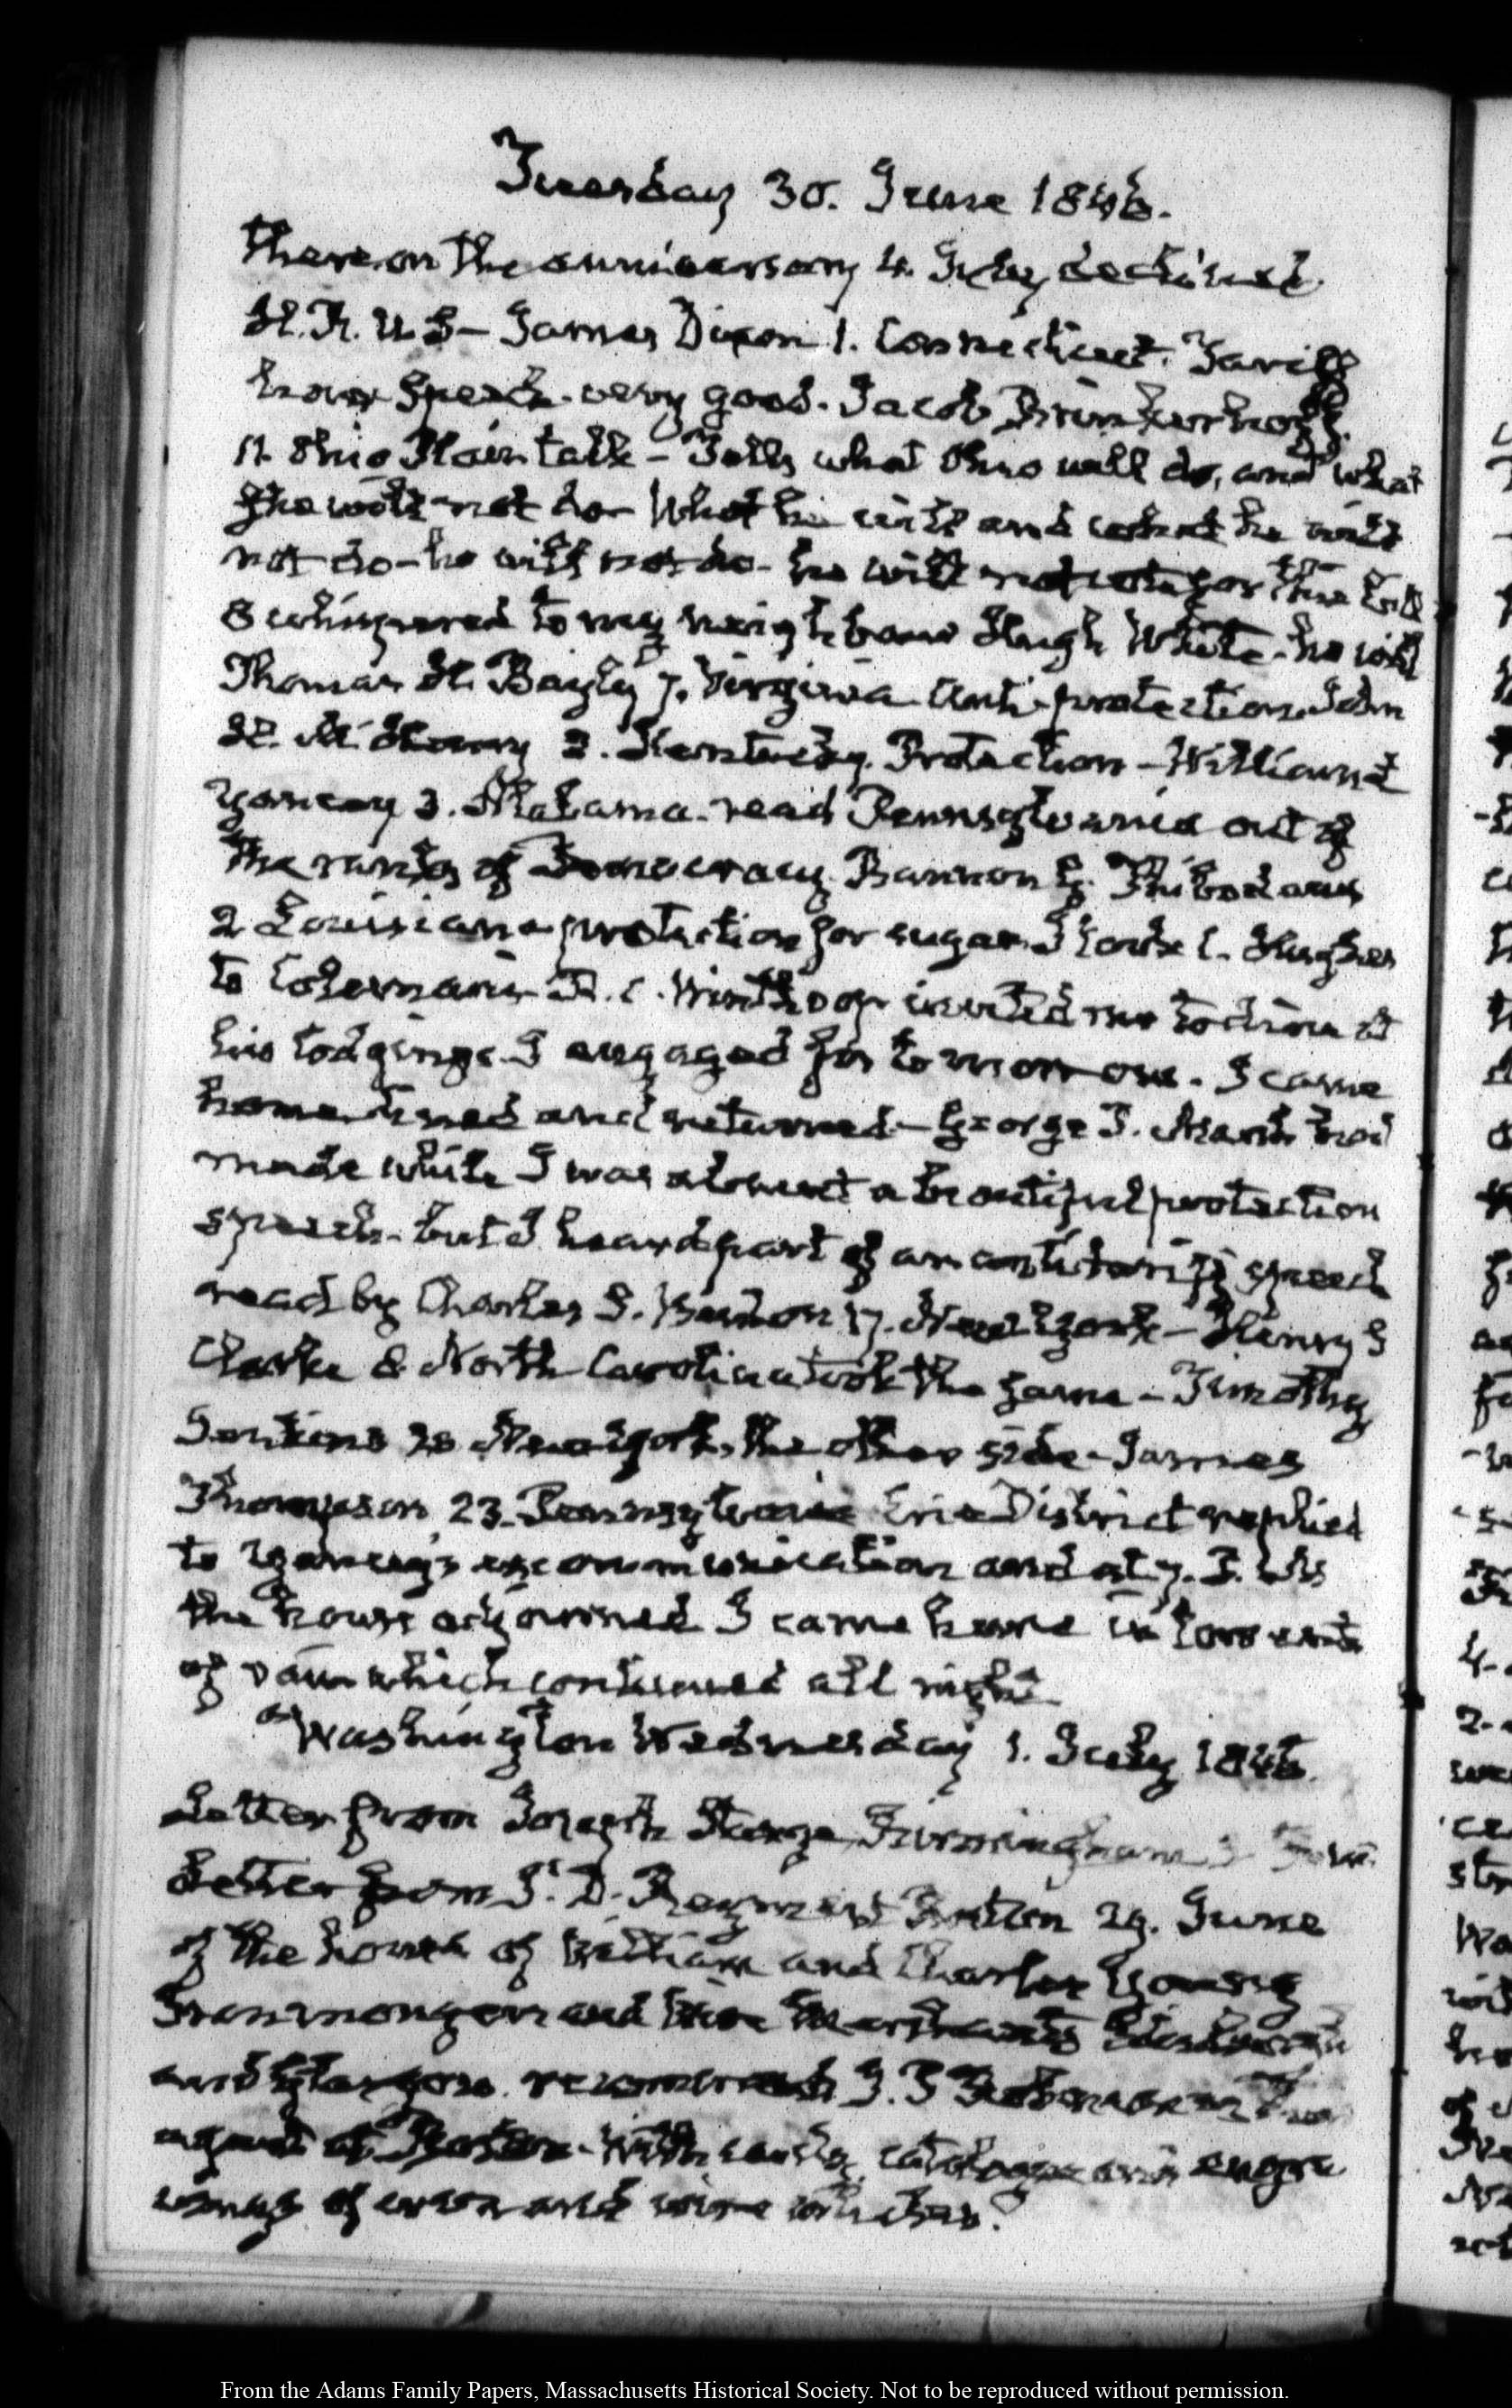 Tuesday 30. June 1846.
there on the anniversary 4. July declined.
H. R. U S — James Dixon 1. Connecticut. Tariff
hour speech very good. Jacob Brinkerhoff
11. Ohio Plain talk — Tells what Ohio will do, and what
She will not do — What he will and what he will
not do — he will not do — he will not vote for the bill
I whispered to my neighbour Hugh White — he will
Thomas H. Bayly 7. Virginia Anti-protection. John
H. McHenry 2. Kentucky. Protection — William L
Yancey 3. Alabama. read Pennsylvania out of
the ranks of Democracy. Bannon G. Thibodaux
2 Louisiana protection for sugar. I took C. Hughes
to Colemans — R. C. Winthrop invited me to dine at
his lodgings. I engaged for tomorrow. I came
home dined and returned — George P. Marsh had
made while I was absent a beautiful protection
speech. but I heard part of an antitariff speech
read by Charles S. Benton 17. New York — Henry S
Clarke 8. North Carolina took the same — Timothy
Jenkins 20 New York, the other side — James
Thompson 23. Pennsylvania Erie District replied
to Yancey's excommunication and at 7.
the house adjourned I came home in torrents
of rain which continued all night.
Washington Wednesday 1. July 1846.
Letter from Joseph Sturge Birmingham 3
Letter from S. D. Boston 29. June
of the house of William and Charles Young
Ironmongers and Wire Edinburgh
and Glasgow. recommends J. P
agent at Boston. With card, catalogue and engra
vings of iron and wire